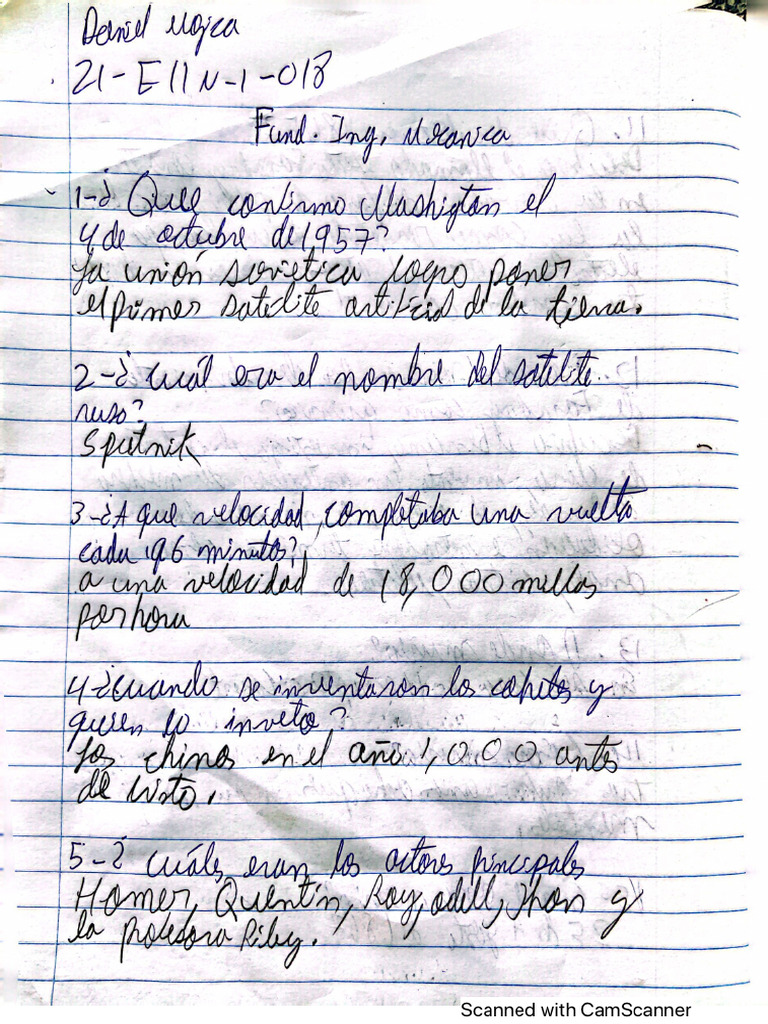 Daniel Mojica
21-EIIN-1-018
Fund. Ing. Mecanica
1-¿Que confirmo Washigtón el
4 de octubre de 1957?
La unión sovietica logro poner
el primer satelite artificial de la tierra.
2-¿Cuál era el nombre del satelite
ruso?
Sputnik
3-¿A que velocidad, completaba una vuelta
cada 96 minutos?
a una velocidad de 18,000 millas
por hora
4-¿cuando se inventaron los cohetes y
quien lo inveto?
Los chinos en el año 1,000 antes
de Cristo.
5-¿cuáles eran los actores principales
Homer, Quentín, Roy, odell, Jhon y
la profesora Riley.
Scanned with CamScanner